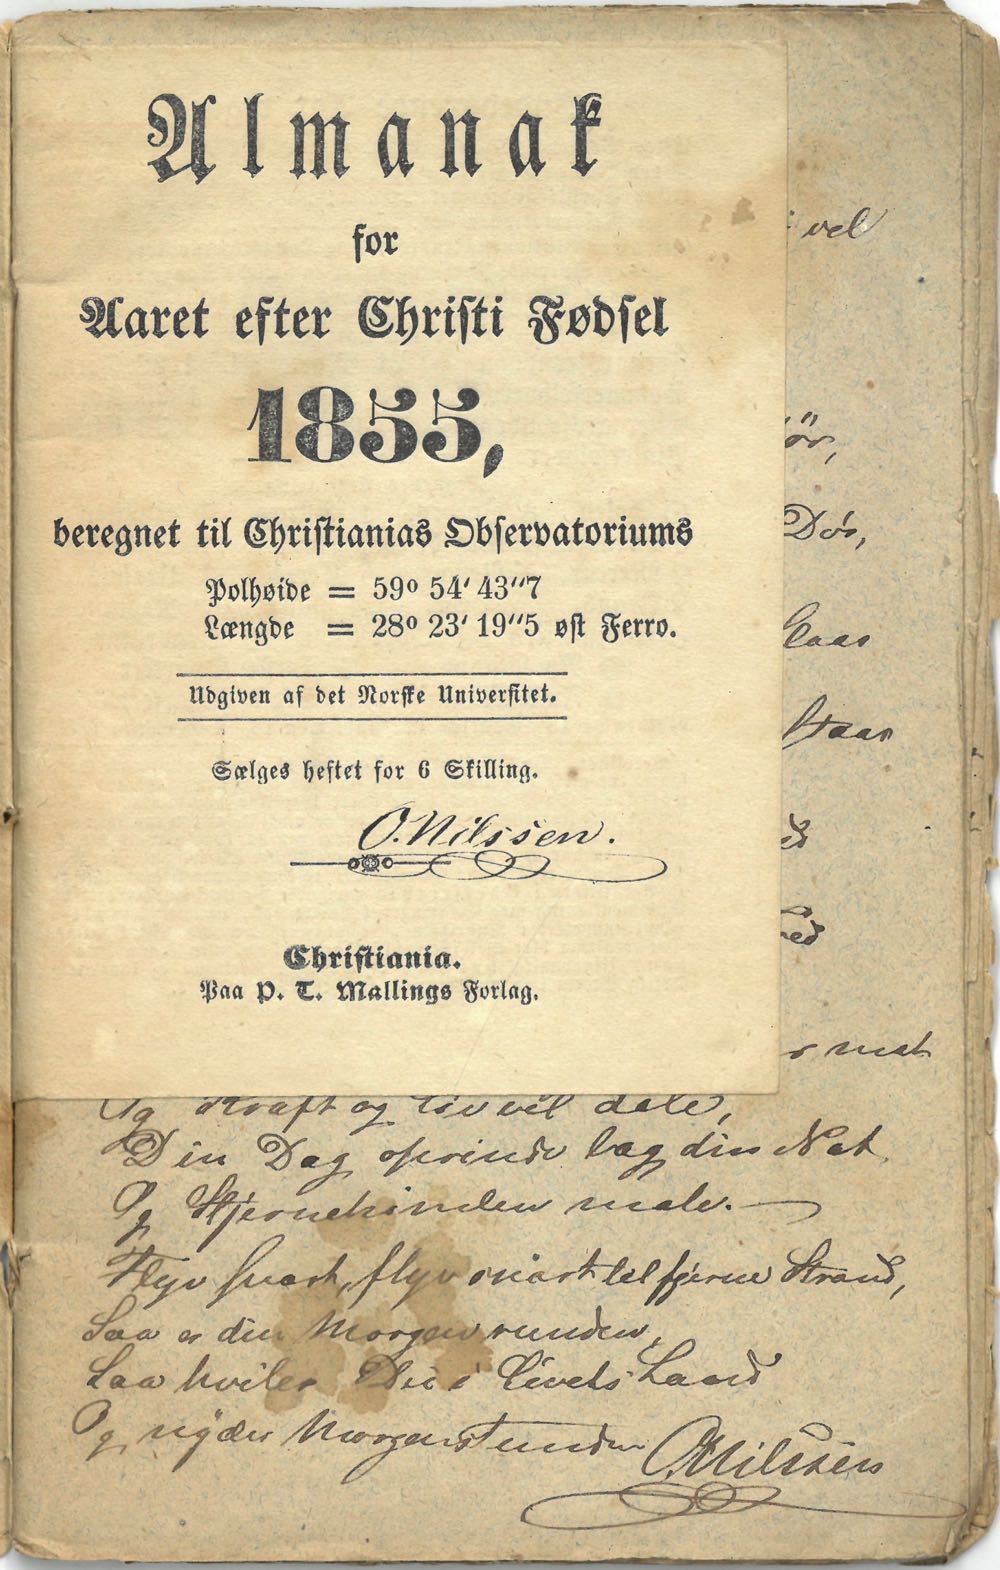 Almanak
for
Aaret efter Christi Fødsel
1855,
beregnet til Christianias Observatoriums
Polhøide = 59° 54′ 43″7
Længde = 28° 23′ 19″5 øst Ferro.
Udgiven af det Norske Universitet.
Sælges heftet for 6 Skilling.
O. Nilssen.
Christiania.
Paa P. T. Mallings Forlag.
vel
Dør,
mat
Og Kraft og Liv vil dale,
Din Dag oprinde bag din Nat
Og Stjernehimlen male. —
Flyv snart, flyv snart til fjerne Strand,
Saa er din Morgen runden,
Saa hviler Du i Livets Land
Og nyder Morgenstunden
O. Nilssen